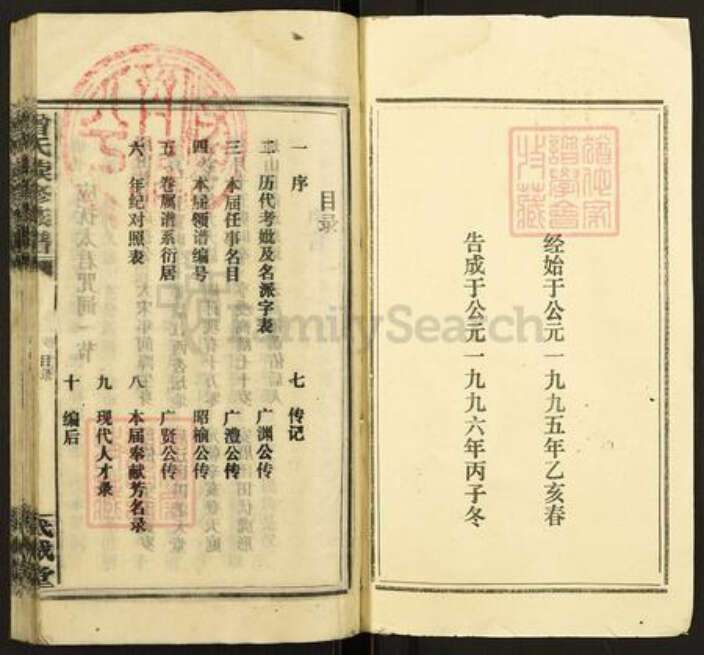 经始于公元一九九五年乙亥春
告成于公元一九九六年丙子冬
目录
一 序
二 历代考妣及名派字表
三 本届任事名目
四 本届领谱编号
五 卷属谱系衍居
六 年纪对照表
七 传记
广渊公传
广澧公传
昭榆公传
广贤公传
八 本届奉献芳名录
九 现代人才录
十 编后
曾氏续修族谱
目录
FamilySearch